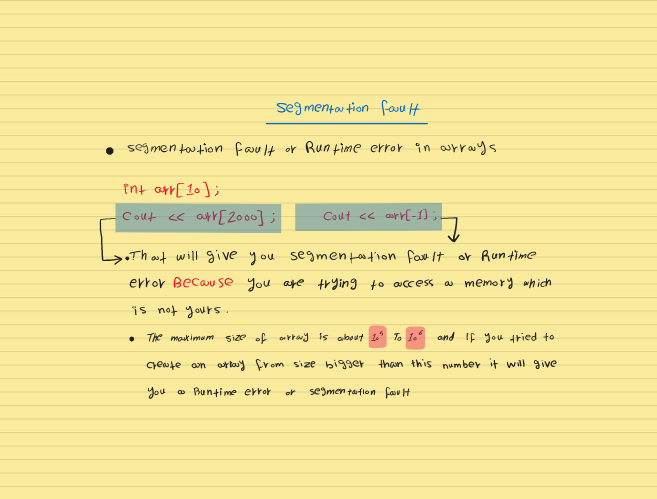 segmentation fault
segmentation fault or Runtime error in arrays
int arr[10];
Cout << arr[2000]; Cout << arr[-1];
That will give you segmentation fault or Runtime
error Because you are trying to access a memory which
is not yours.
The maximum size of array is about 10⁵ To 10⁶ and if you tried to
create an array from size bigger than this number it will give
you a Runtime error or segmentation fault